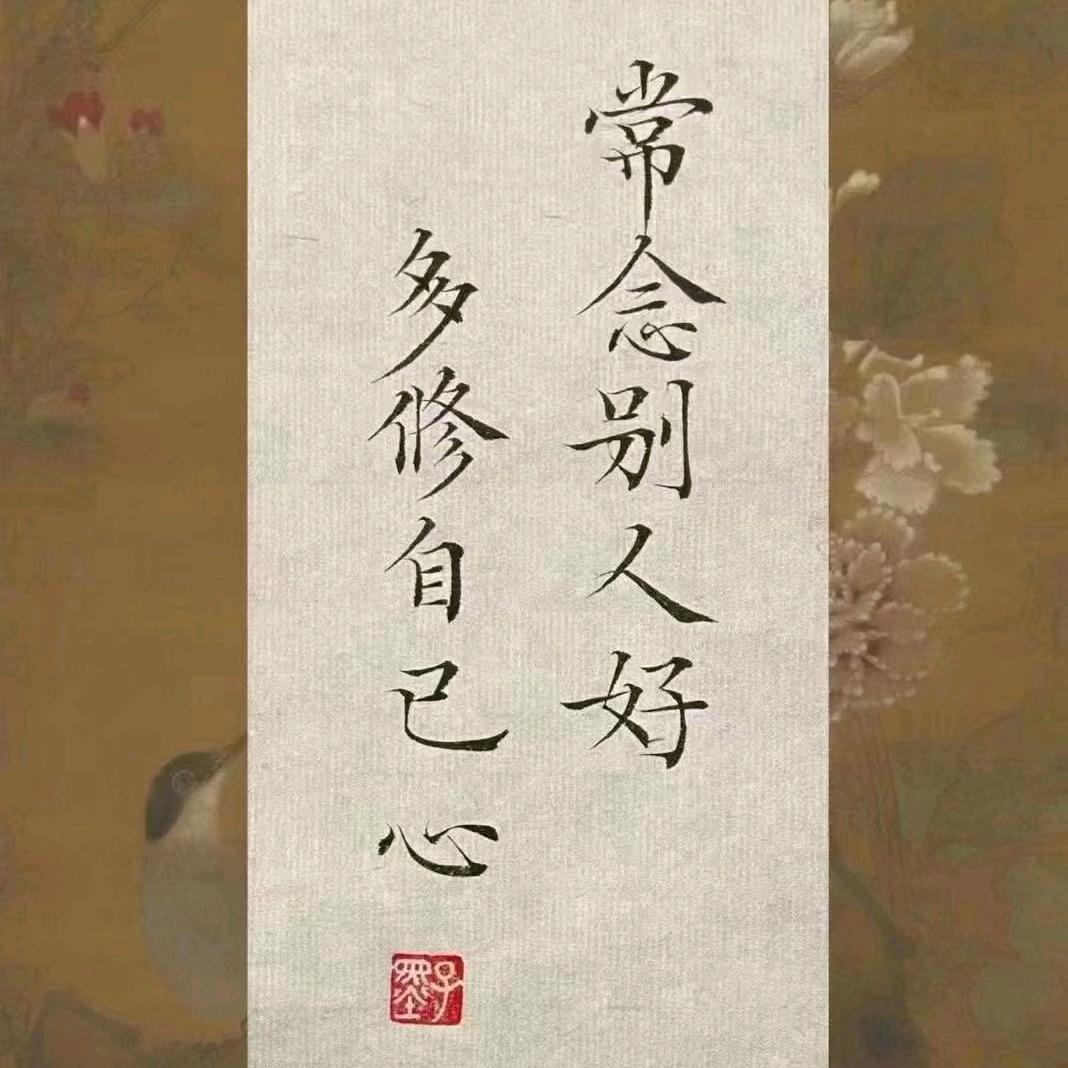 常念别人好
多修自己心